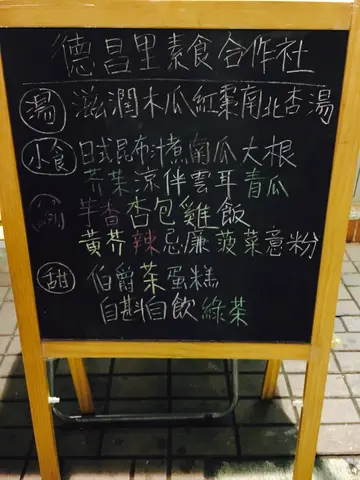 德昌里素食合作社
湯 滋潤木瓜紅棗南北杏湯
小食 日式昆布汁煮南瓜大根
芥茉涼伴雲耳青瓜
芊香杏包雞飯
黄芥辣忌廉菠菜意粉
甜 伯爵茶蛋糕
自斟自飲綠茶